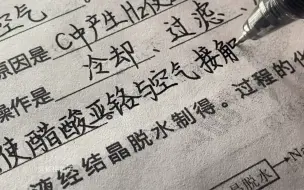 空气。
原因是 C中产生H₂使
冷却、过滤、
操作是
使醋酸亚铬与空气接触
液经结晶脱水制得。过程的
脱水